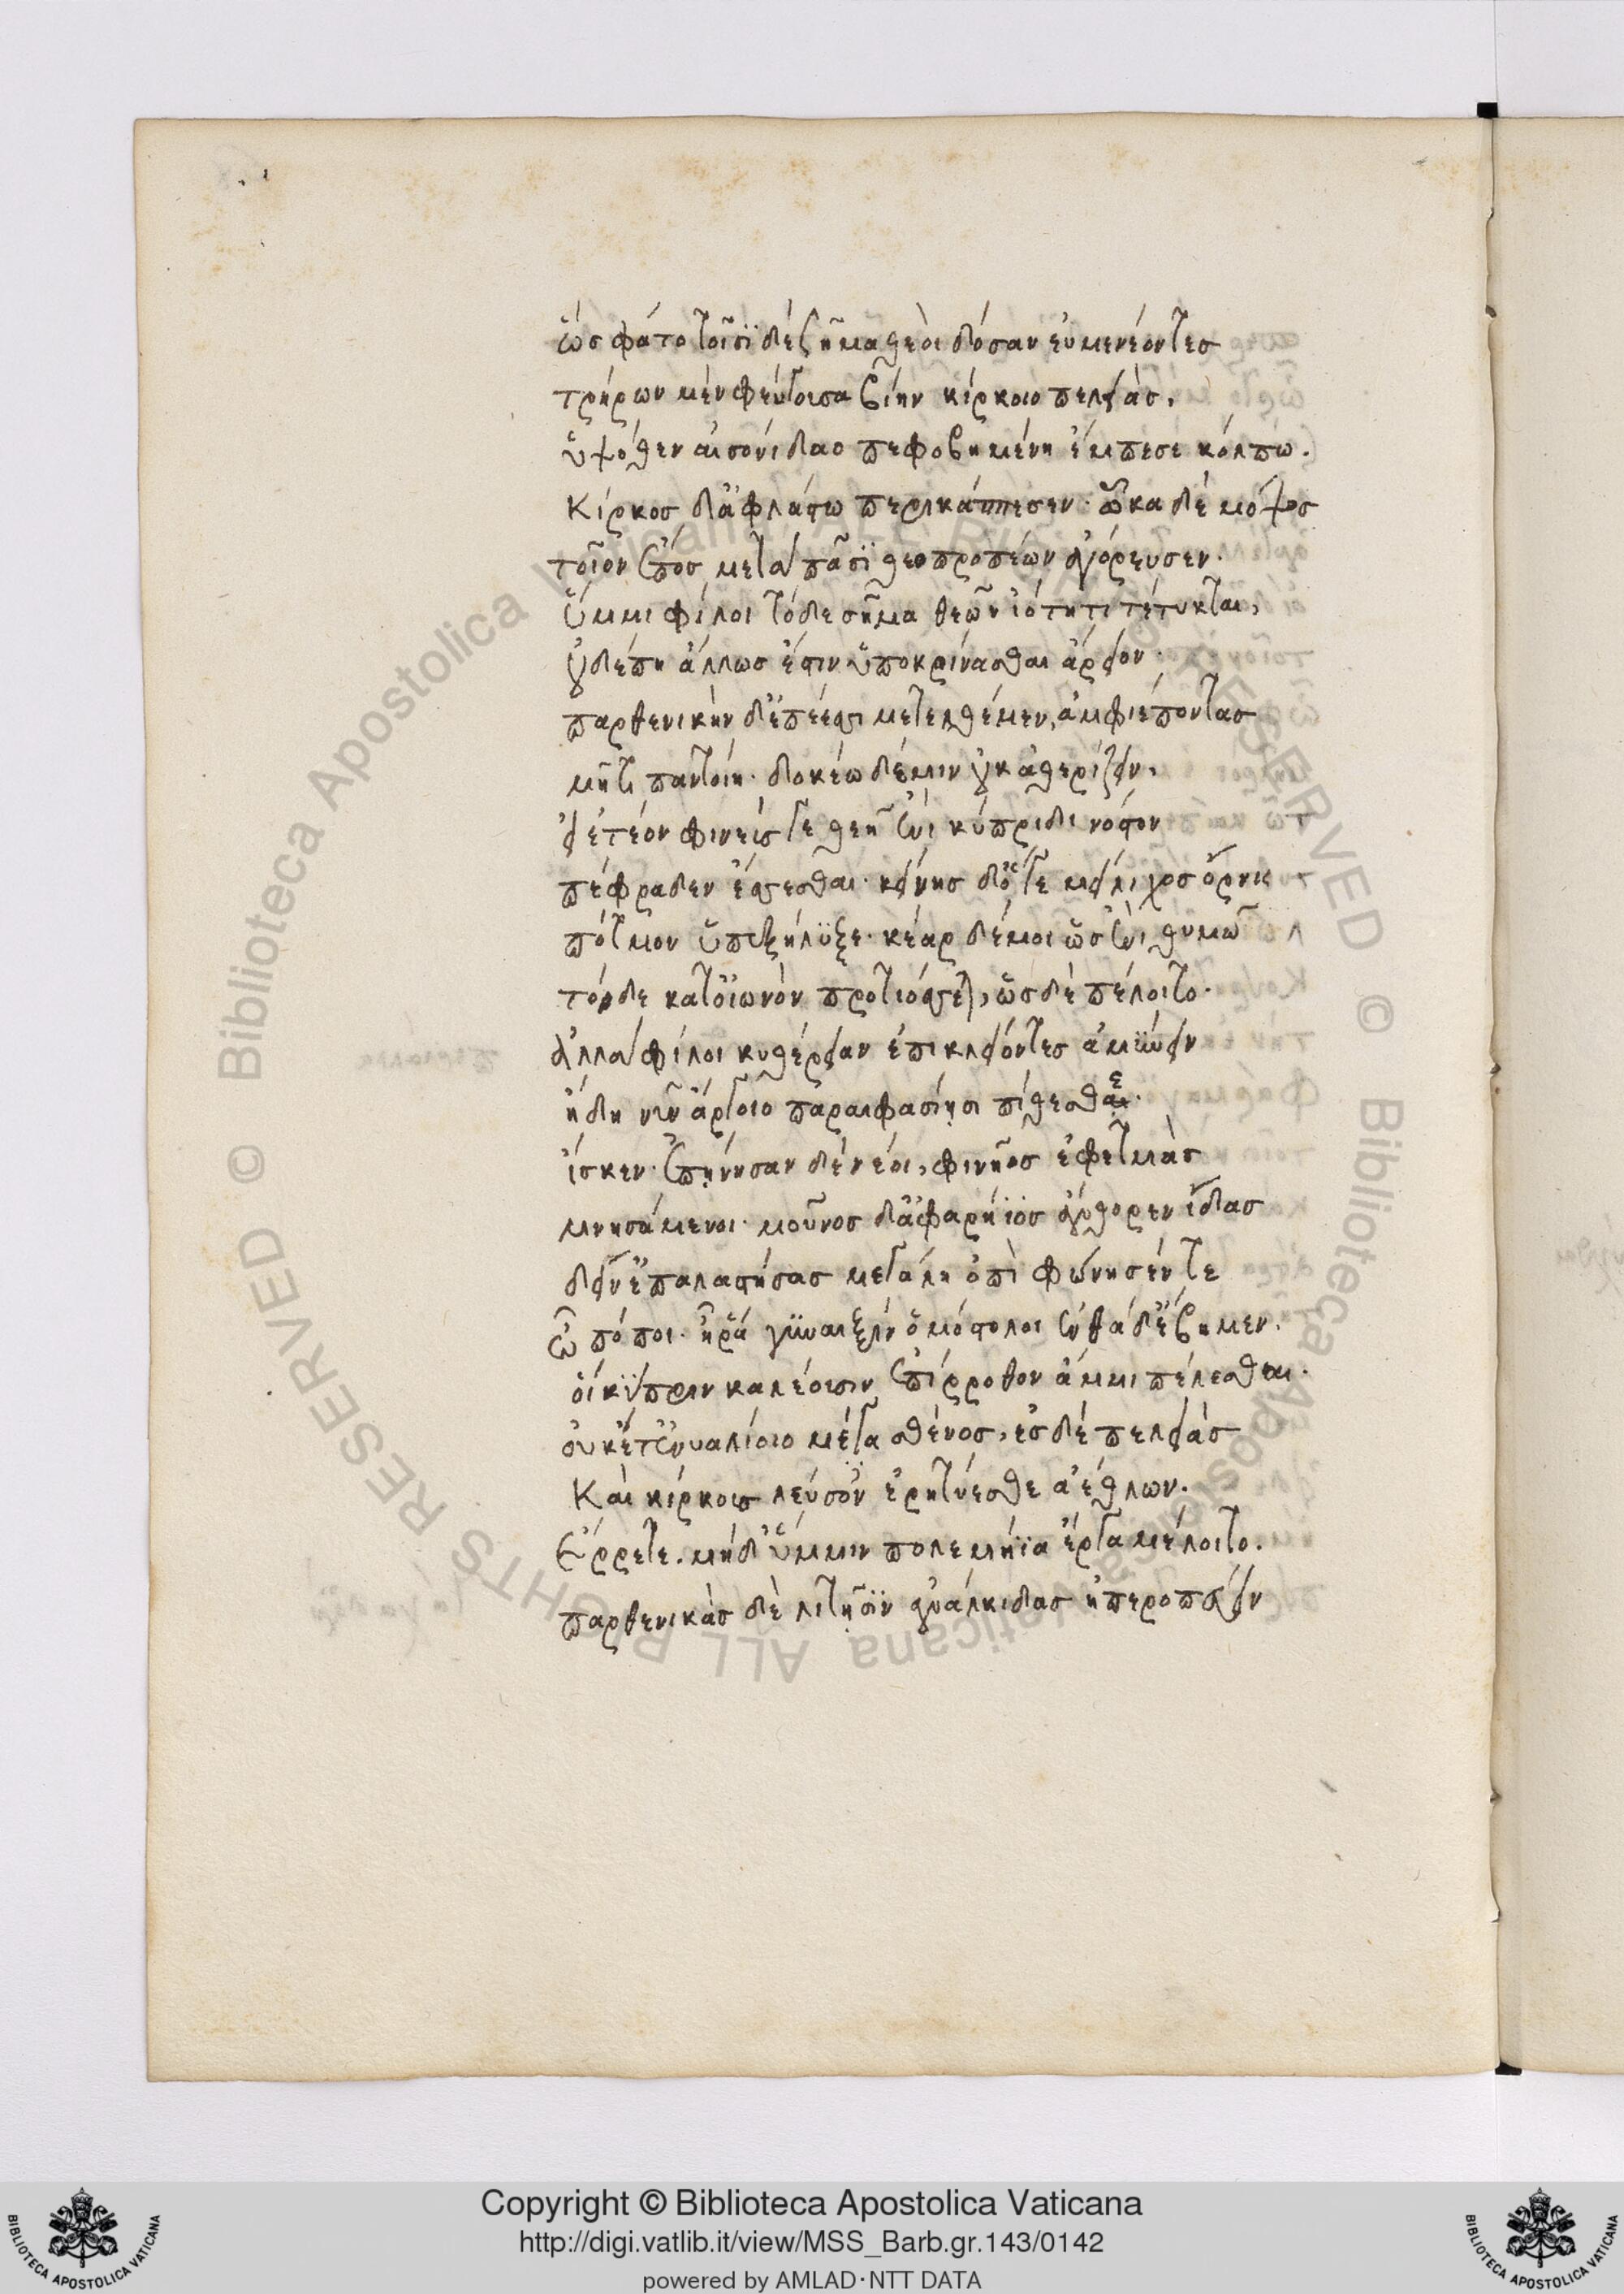 ὣς φάτο τοῖσϊ δὲ σῆμα θεοὶ δόσαν εὐμενέοντες
τρήρων μὲν φεύγουσα βίην κίρκοιο πελειὰς,
ὑψόθεν αἰσονίδαο πεφοβημένη ἔμπεσε κόλπω.
Κίρκος δ' ἀφλάστω περικάππεσεν· ὦκα δὲ μόψος
τοῖον ἔπος μετὰ πᾶσϊ θεοπροπέων ἀγόρευσεν.
ὔμμι φίλοι τόδε σῆμα θεῶν ἰότητι τέτυκται,
οὐδέ πη ἄλλως ἔστιν ὑποκρίνασθαι ἄρειον·
παρθενικὴν δ' ἐπέεσσι μετελθέμεν, ἀμφιέποντας
μήτι παντοίη· δοκέω δέ μιν οὐκ ἀθερίζειν,
εἰ ἐτεόν φινεύς γε θεῆ ἐνὶ κύπριδι νόστον
πέφραδεν ἔσσεσθαι· κείνης δ' ὅγε μείλιχος ὄρνις
πότμον ὑπεξήλϋξε· κέαρ δέ μοι ὡς ἐνὶ θυμῶ
τόνδε κατ' οἰωνὸν προτιόσσεται, ὣς δὲ πέλοιτο·
ἀλλὰ φίλοι κυθέρειαν ἐπικλείοντες ἀμϋνειν
ἤδη νῦν ἄργοιο παραιφασίησι πίθεσθαι ε.
ἴσκεν· ἐπήνησαν δὲ νέοι, φινῆος ἐφετμὰς
μνησάμενοι· μοῦνος δ' ἀφαρήϊος ἄνθορεν ἴδας
δείν' ἐπαλαστήσας μεγάλη ὀπὶ φώνησέν τε
ὢ πόποι· ἦ ῥά γϋναιξὶν ὁμόστολοι ἐνθάδ' ἔβημεν.
οἳ κϋπριν καλέουσιν ἐπίρροθον ἄμμι πέλεσθαι·
οὐκ ἔτ' ἐνυαλίοιο μέγα σθένος, ἐς δὲ πελειὰς
Καὶ κίρκους λεύσον ἐρητύεσθε ἀέθλων.
Ἔρρετε. μήδ' ὔμμιν πολεμήϊα ἔργα μέλοιτο.
παρθενικὰς δὲ λιτῆσϊν ἀνάλκιδας ἠπεροπεύειν
Copyright © Biblioteca Apostolica Vaticana
http://digi.vatlib.it/view/MSS_Barb.gr.143/0142
powered by AMLAD·NTT DATA
BIBLIOTECA APOSTOLICA VATICANA
BIBLIOTECA APOSTOLICA VATICANA
© Biblioteca Apostolica Vaticana ALL RIGHTS RESERVED
© Biblioteca Apostolica Vaticana ALL RIGHTS RESERVED